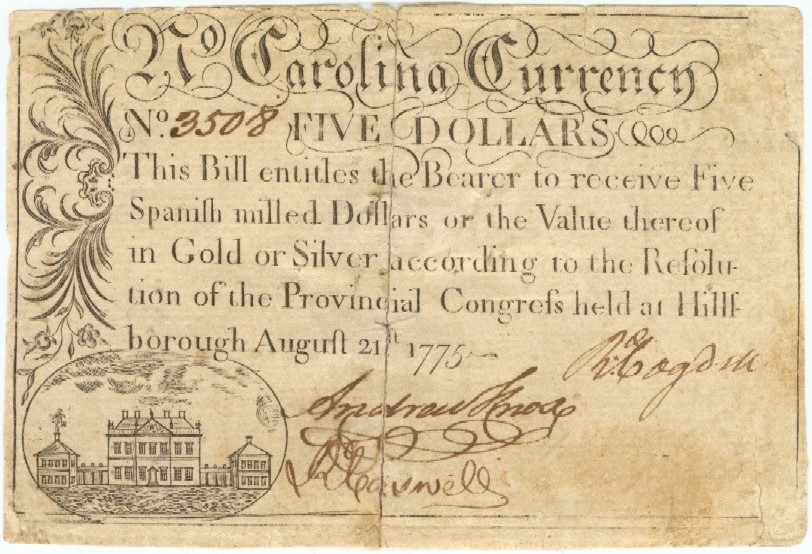 No Carolina Currency
No. 3508 FIVE DOLLARS
This Bill entitles the Bearer to receive Five
Spaniſh milled Dollars or the Value thereof
in Gold or Silver according to the Reſolu-
tion of the Provincial Congreſs held at Hillſ-
borough Auguſt 21ſt 1775
R Cogdell
Andrew Knox
R Caswell